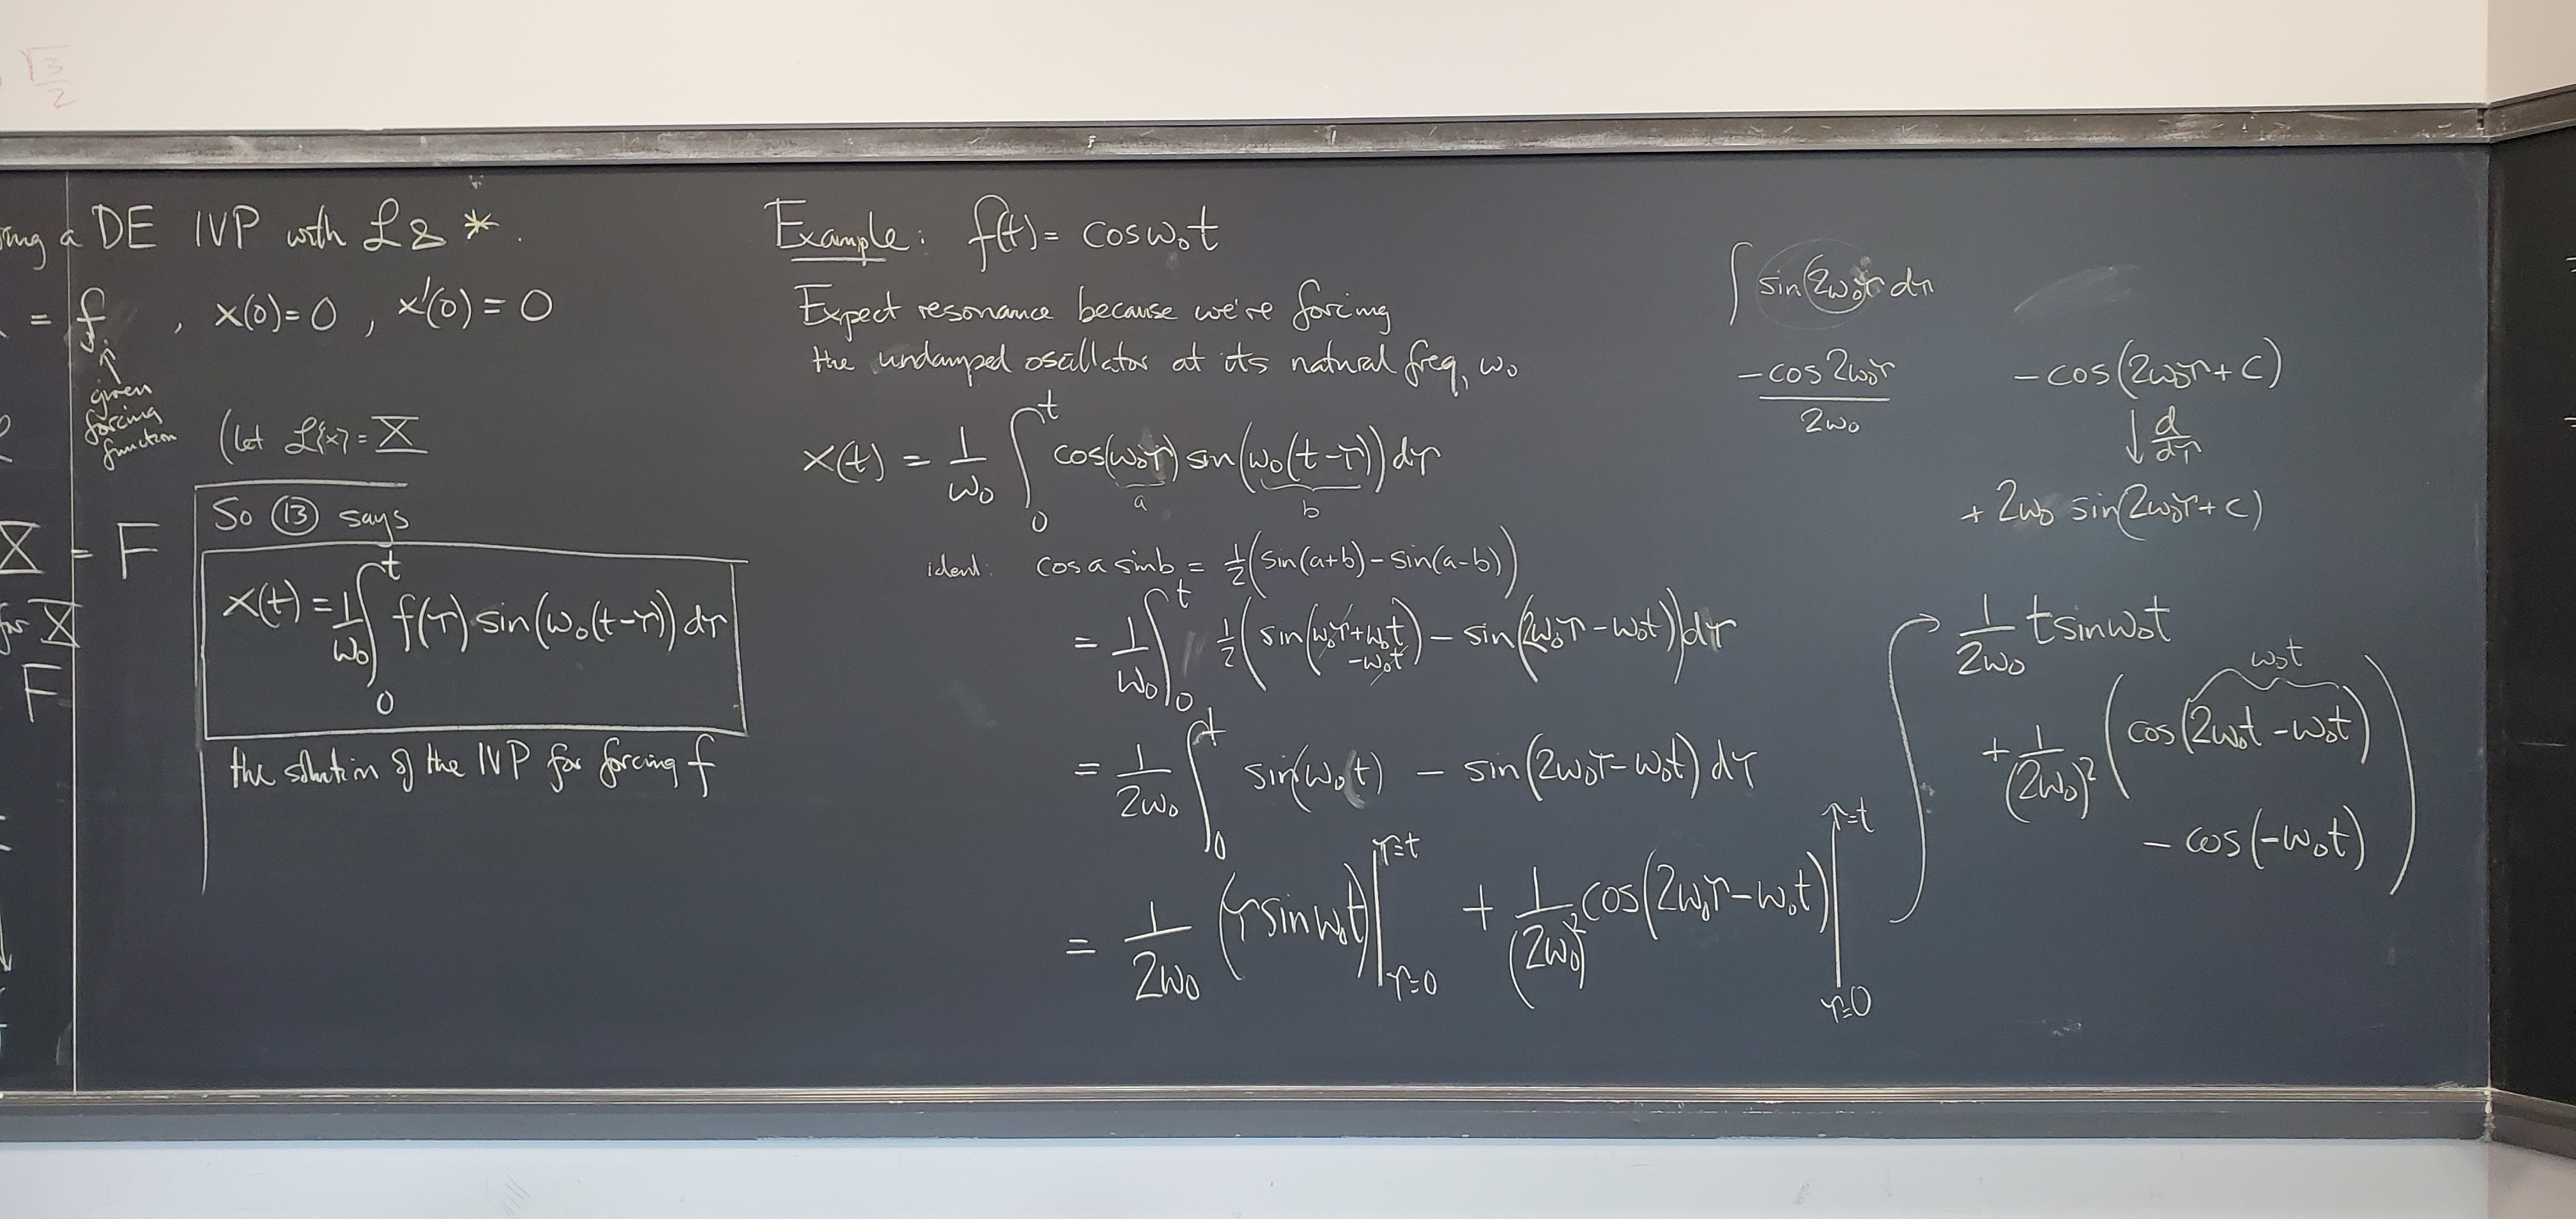 √3/2
a DE IVP with ℒ & *.
= f , x(0)=0 , x'(0) = 0
↑
given
forcing
function
(let ℒ{x} = X
X = F
So ⑬ says
x(t) = 1/ω₀ ∫₀ᵗ f(τ) sin(ω₀(t-τ)) dτ
for X
F
the solution of the IVP for forcing f
Example: f(t) = cos ω₀t
Expect resonance because we're forcing
the undamped oscillator at its natural freq, ω₀
x(t) = 1/ω₀ ∫₀ᵗ cos(ω₀τ) sin(ω₀(t-τ)) dτ
a b
ident: cos a sin b = ½(sin(a+b) - sin(a-b))
= 1/ω₀ ∫₀ᵗ ½(sin(ω₀τ+ω₀t -ω₀τ) - sin(2ω₀τ - ω₀t)) dτ
= 1/2ω₀ ∫₀ᵗ sin(ω₀t) - sin(2ω₀τ - ω₀t) dτ
= 1/2ω₀ (τ sin ω₀t)|τ=t τ=0 + 1/(2ω₀)² cos(2ω₀τ - ω₀t)|τ=t τ=0
∫ sin(2ω₀τ dτ
-cos 2ω₀τ / 2ω₀
-cos(2ω₀τ + c)
↓ d/dτ
+ 2ω₀ sin(2ω₀τ + c)
1/2ω₀ t sin ω₀t
ω₀t
+ 1/(2ω₀)² (cos(2ω₀t - ω₀t)
- cos(-ω₀t))